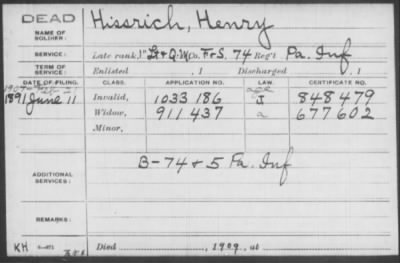 DEAD
NAME OF SOLDIER: Hissrich, Henry
SERVICE: Late rank, 1" Lt & Q.M. Co. F&S, 74 Reg't Pa. Inf
TERM OF SERVICE: Enlisted , 1 Discharged , 1
DATE OF FILING. CLASS. APPLICATION NO. LAW. CERTIFICATE NO.
1891 June 11 Invalid, 1033 186 J 848479
Widow, 911 437 677602
Minor,
B-74 & 5 Pa. Inf
ADDITIONAL SERVICES:
REMARKS:
KH Died , 1909, at